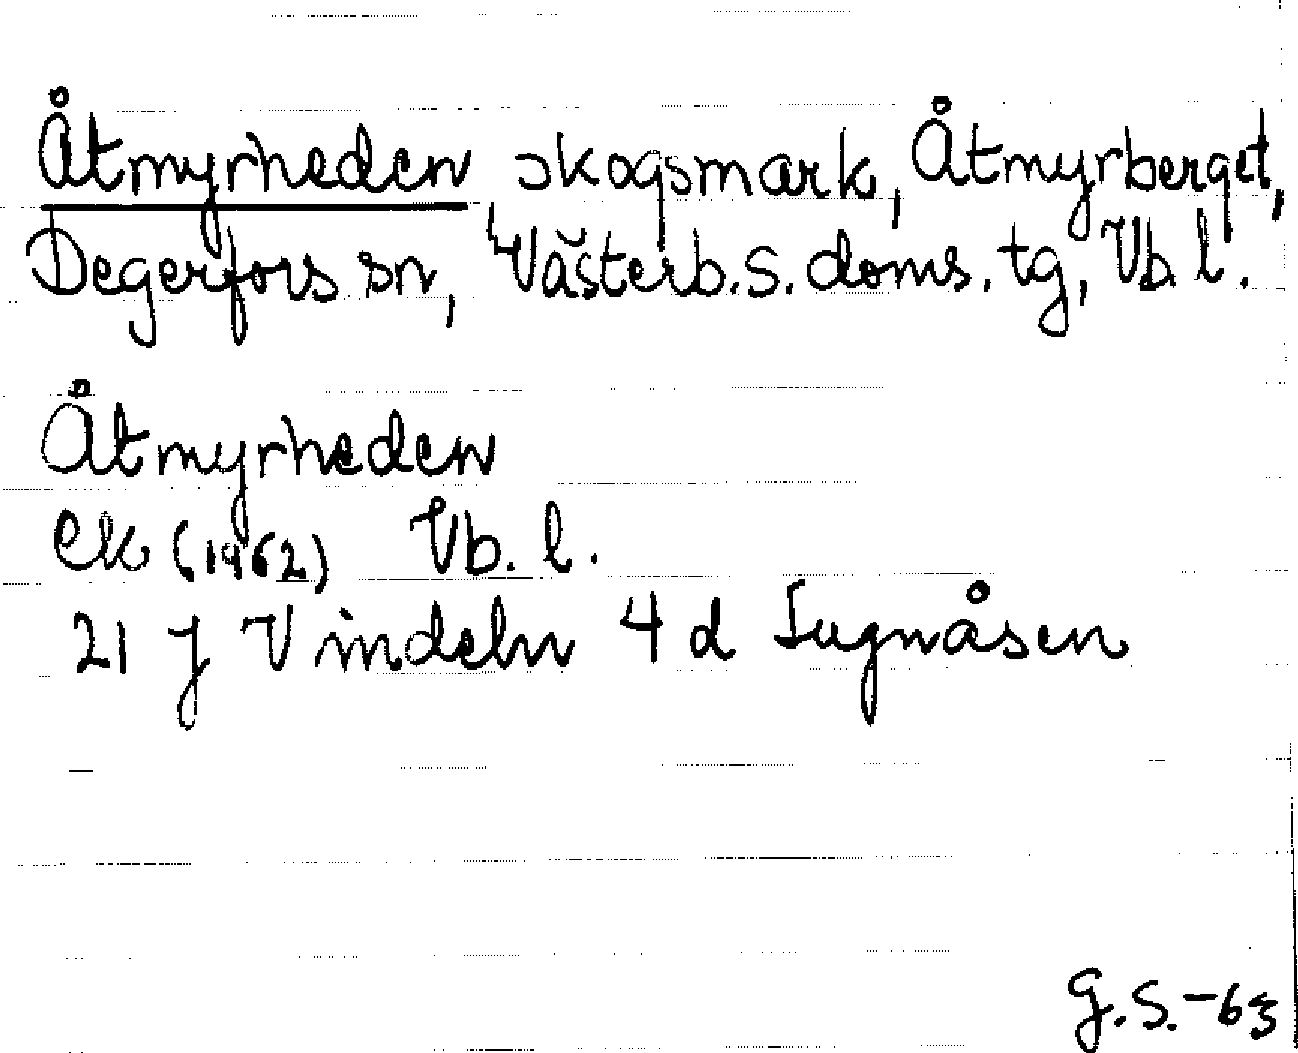 Åtmyrheden skogsmark, Åtmyrberget,
Degerfors sn, Västerb. s. doms. tg, Vb. l.
Åtmyrheden
ek (1962) Vb. l.
21 J Vindeln 4 d Tugnåsen
G.S.-63